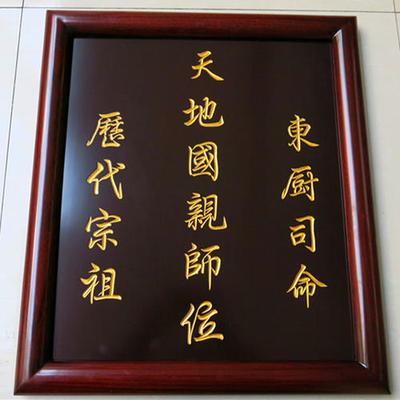 東厨司命
天地國親師位
歷代宗祖